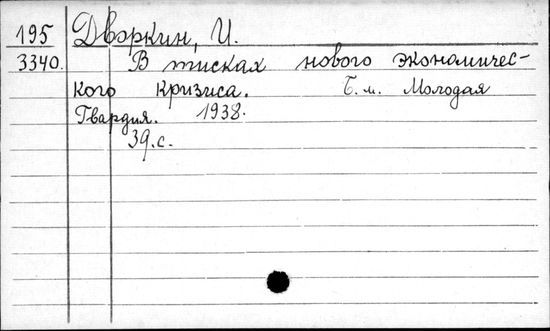 195 Дворкин, И.
3340. В тисках нового экономичес-
кого кризиса. Б.м. Молодая
Гвардия. 1938.
39.с.